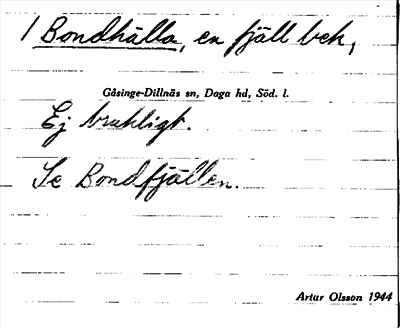 1 Bondhälla, en fjäll bek,
Gåsinge-Dillnäs sn, Daga hd, Söd. l.
Ej brukligt.
Se Bondfjällen.
Artur Olsson 1944